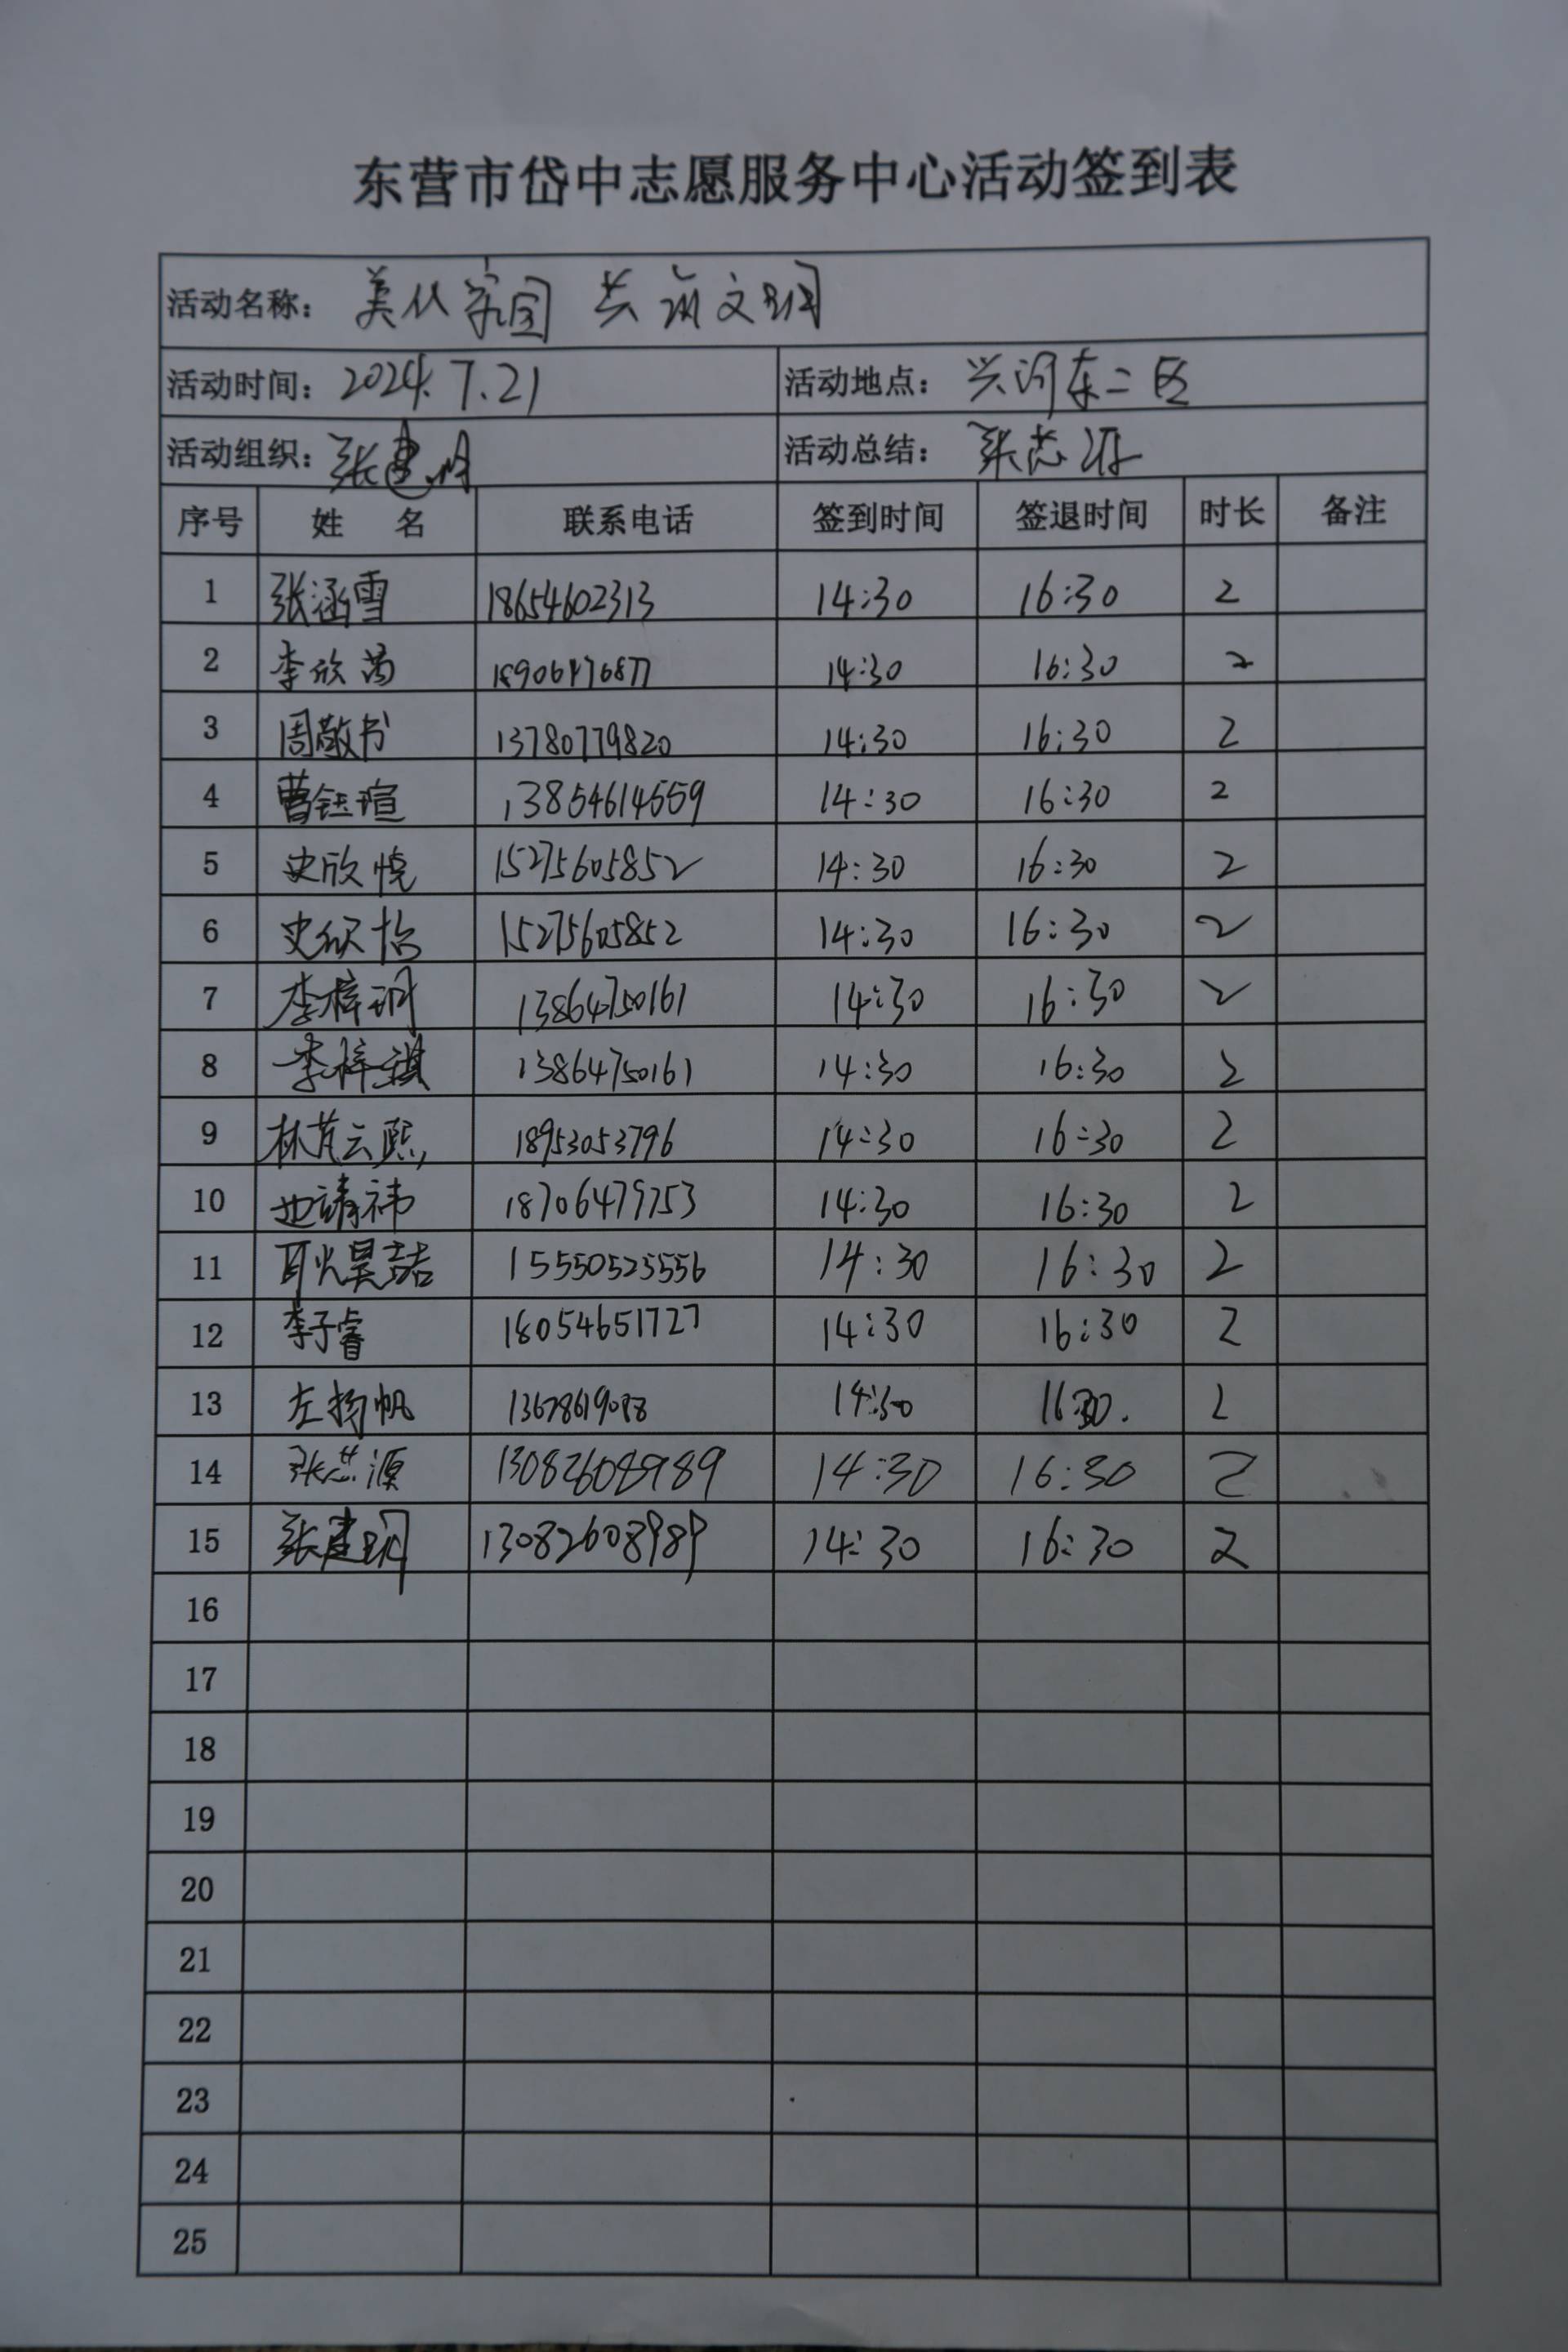 东营市岱中志愿服务中心活动签到表
活动名称: 美化家园 共筑文明
活动时间: 2024.7.21 活动地点: 兴河东二区
活动组织: 张建明 活动总结: 张芯源
序号 姓 名 联系电话 签到时间 签退时间 时长 备注
1 张涵雪 18654602313 14:30 16:30 2
2 李欣 14:30 16:30 2
3 周敬书 13780779820 14:30 16:30 2
4 曹钰瑄 13854614559 14:30 16:30 2
5 史欣悦 15275605852 14:30 16:30 2
6 史欣怡 15275605852 14:30 16:30 2
7 李梓玥 13864750161 14:30 16:30 2
8 李梓祺 13864750161 14:30 16:30 2
9 林芃云熙 18953053796 14:30 16:30 2
10 靖祎 14:30 16:30 2
11 耿昊喆 15550525556 14:30 16:30 2
12 李子睿 18054651727 14:30 16:30 2
13 左扬帆 14:30 16:30. 2
14 张芯源 13082608989 14:30 16:30 2
15 张建明 13082608989 14:30 16:30 2
16
17
18
19
20
21
22
23
24
25